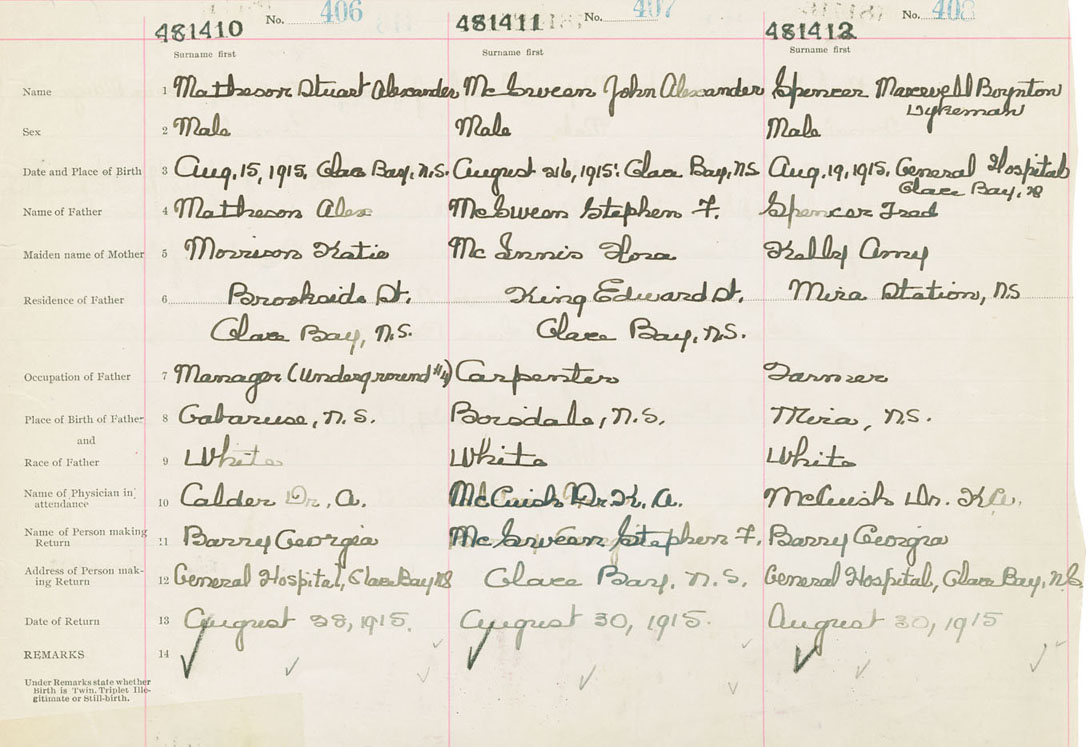 No. 406 No. 407 No. 408
481410 481411 481412
Surname first Surname first Surname first
Name 1 Matheson Stuart Alexander McSween John Alexander Spencer Maxwell Boynton
Dykeman
Sex 2 Male Male Male
Date and Place of Birth 3 Aug. 15, 1915, Glace Bay, N.S. August 26, 1915. Glace Bay, NS Aug. 19, 1915. General Hospital
Glace Bay, NS
Name of Father 4 Matheson Alex McSween Stephen F. Spencer Fred
Maiden name of Mother 5 Morrison Katie McInnis Flora Kelly Amy
Residence of Father 6 Brookside St. King Edward St. Mira Station, NS
Glace Bay, N.S. Glace Bay, N.S.
Occupation of Father 7 Manager (Underground #4) Carpenter Farmer
Place of Birth of Father 8 Gabaruse, N.S. Boisdale, N.S. Mira, N.S.
and
Race of Father 9 White White White
Name of Physician in attendance 10 Calder Dr., A. McCuish Dr. K. A. McCuish Dr. K.A.
Name of Person making Return 11 Barry Georgia McSween Stephen F. Barry Georgia
Address of Person mak-
ing Return 12 General Hospital, Glace Bay NS Glace Bay, N.S. General Hospital, Glace Bay, N.S.
Date of Return 13 August 28, 1915. August 30, 1915. August 30, 1915
REMARKS 14
Under Remarks state whether
Birth is Twin, Triplet Ille-
gitimate or Still-birth.